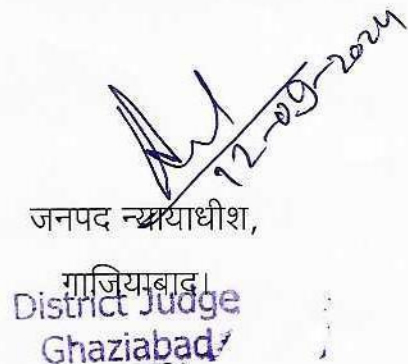 12-09-2024
जनपद न्यायाधीश,
गाजियाबाद।
District Judge
Ghaziabad